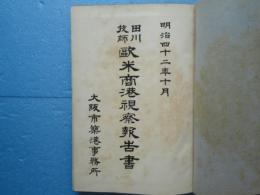 明治四十二年十月
田川技師 歐米商港視察報告書
大阪市築港事務所